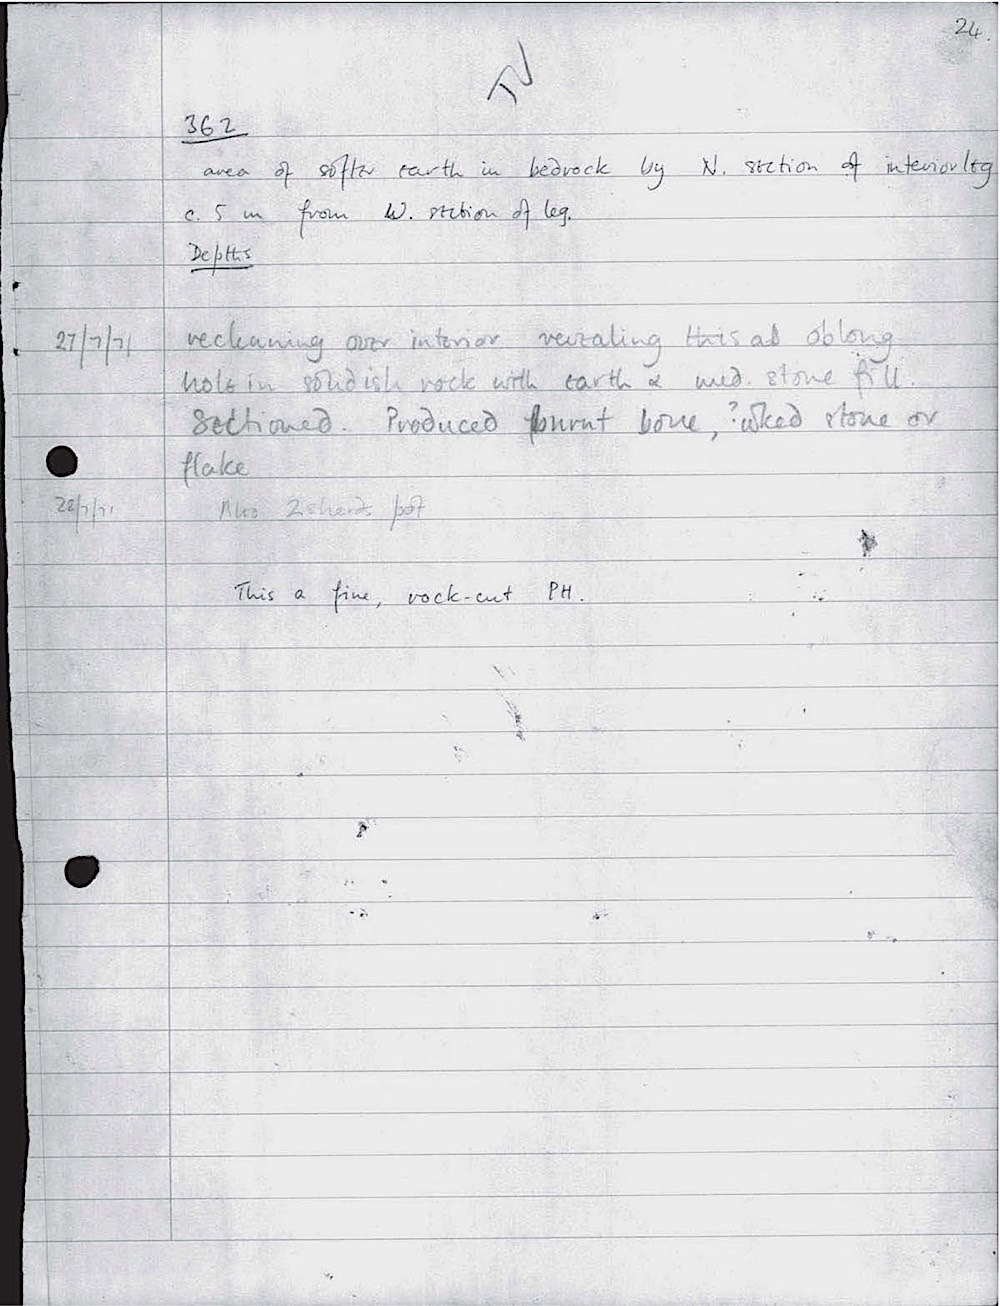 24.
362
area of softer earth in bedrock by N. section of interior leg
c. 5 m from W. section of leg.
Depths
27/7/71 recleaning over interior revealing this as oblong
hole in solidish rock with earth & med. stone fill.
Sectioned. Produced burnt bone, ?wked stone or
flake
28/7/71 Also 2 sherds pot
This a fine, rock-cut PH.